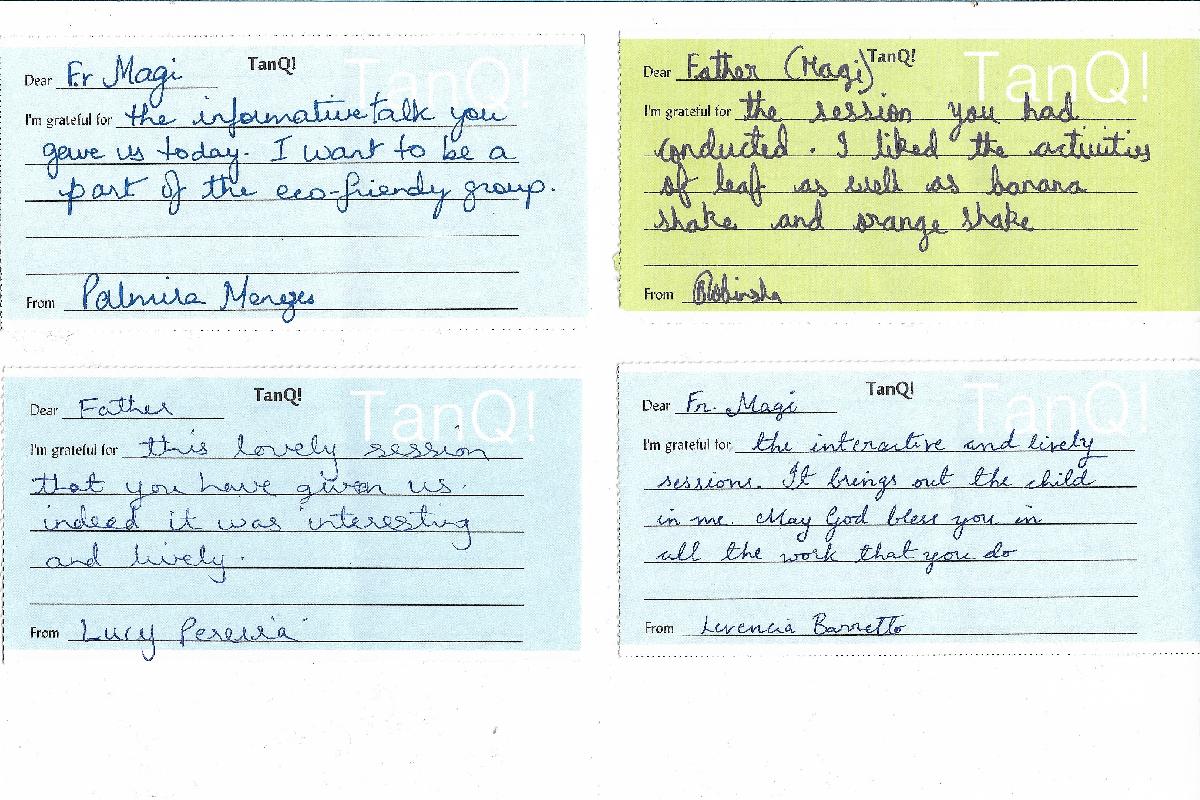 TanQ!
TanQ!
Dear Fr Magi
I'm grateful for the informative talk you
gave us today. I want to be a
part of the eco-friendly group.
From Palmira Menezes
TanQ!
TanQ!
Dear Father (Magi)
I'm grateful for the session you had
conducted. I liked the activities
of leaf as well as banana
shake and orange shake
From
TanQ!
TanQ!
Dear Father
I'm grateful for this lovely session
that you have given us.
indeed it was interesting
and lively.
From Lucy Pereira
TanQ!
TanQ!
Dear Fr. Magi
I'm grateful for the interactive and lively
sessions. It brings out the child
in me. May God bless you in
all the work that you do
From Levencia Barretto